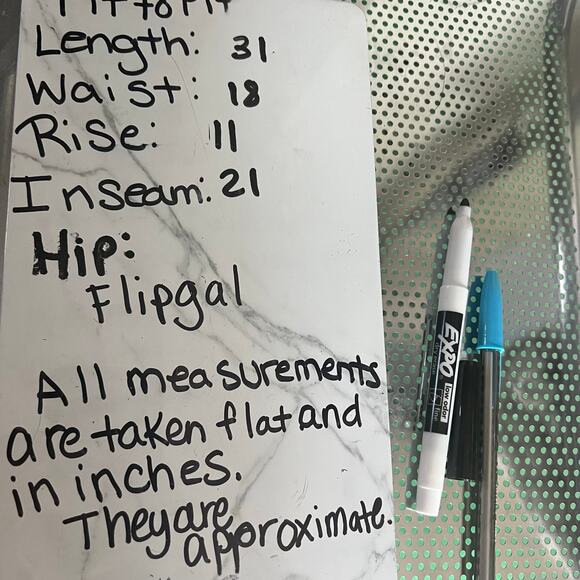 Pit to Pit
Length: 31
Waist: 18
Rise: 11
Inseam: 21
Hip:
Flipgal
All measurements
are taken flat and
in inches.
They are
approximate.
EXPO
low odor
fine